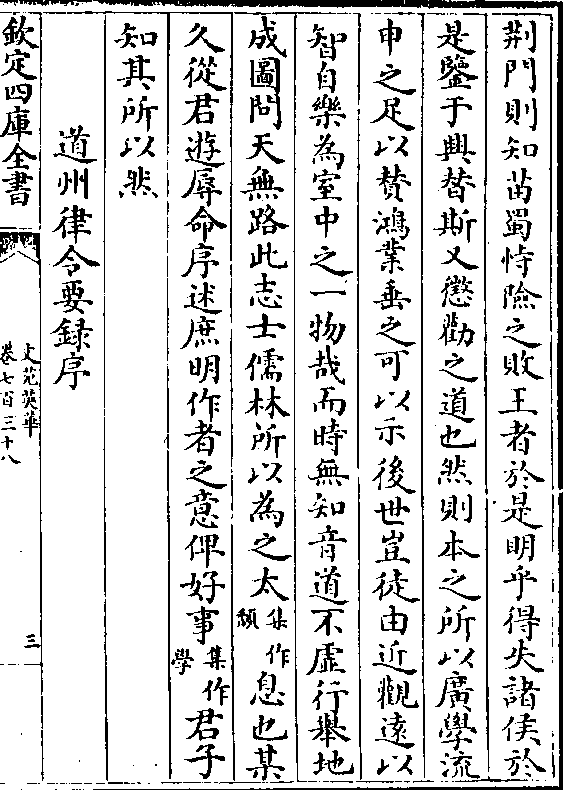 荆門則知苗蜀恃險之敗王者於是明乎得失諸侯於
是鑒于興替斯又懲勸之道也然則本之所以廣學流
申之足以賛鴻業垂之可以示後世豈徒由近觀逺以
智自樂為室中之一物哉而時無知音道不虛行舉地
成圖問天無路此志士儒林所以為之太集作頽息也某
久從君遊辱命序述庶明作者之意俾好事集作學君子
知其所以然
道州律令要録序
欽定四庫全書
文苑英華
卷七百三十八
三